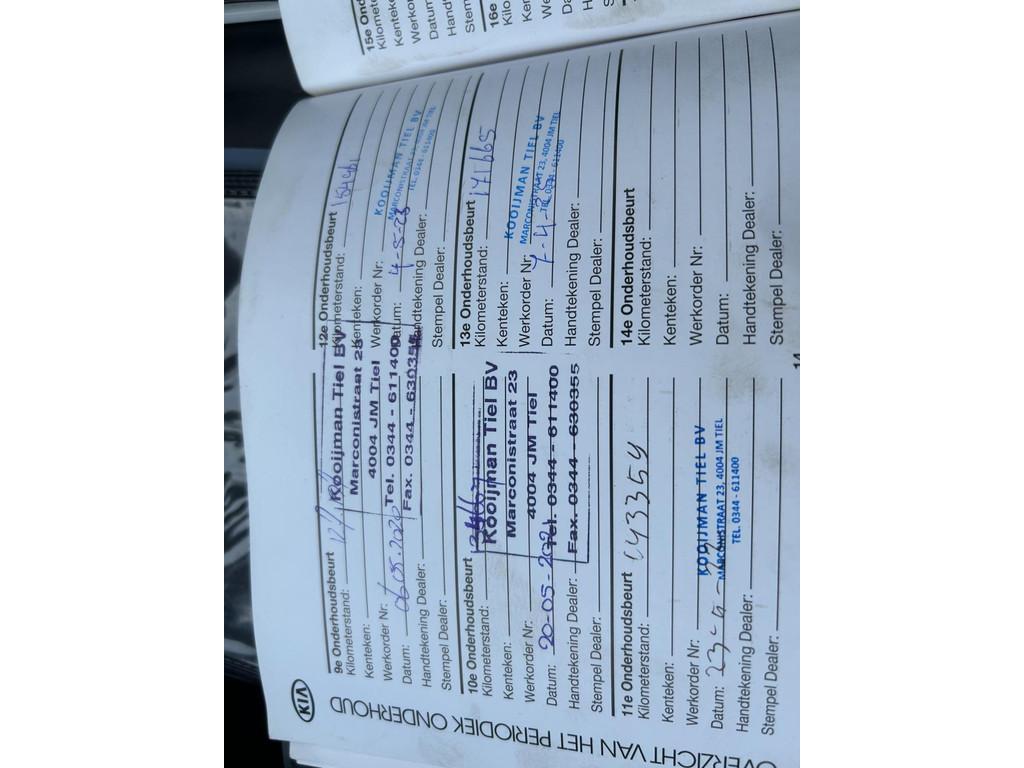 KIA
OVERZICHT VAN HET PERIODIEK ONDERHOUD
9e Onderhoudsbeurt
Kilometerstand:
Kenteken:
Werkorder Nr:
Datum: 06.05.2020
Handtekening Dealer:
Stempel Dealer:
Kooijman Tiel BV
Marconistraat 23
4004 JM Tiel
Tel. 0344 - 611400
Fax. 0344 - 630355
10e Onderhoudsbeurt
Kilometerstand:
Kenteken:
Werkorder Nr:
Datum: 20-05-2021
Handtekening Dealer:
Stempel Dealer:
Kooijman Tiel BV
Marconistraat 23
4004 JM Tiel
Tel. 0344 - 611400
Fax. 0344 - 630355
11e Onderhoudsbeurt
Kilometerstand: 143354
Kenteken:
Werkorder Nr:
Datum: 23-4-
Handtekening Dealer:
Stempel Dealer:
KOOIJMAN TIEL BV
MARCONISTRAAT 23, 4004 JM TIEL
TEL. 0344 - 611400
12e Onderhoudsbeurt
Kilometerstand:
Kenteken:
Werkorder Nr:
Datum: 4-5-23
Handtekening Dealer:
Stempel Dealer:
KOOIJMAN TIEL BV
MARCONISTRAAT 23, 4004 JM TIEL
TEL. 0344 - 611400
13e Onderhoudsbeurt
Kilometerstand: 171665
Kenteken:
Werkorder Nr:
Datum: 7-4-
Handtekening Dealer:
Stempel Dealer:
KOOIJMAN TIEL BV
MARCONISTRAAT 23, 4004 JM TIEL
TEL. 0344 - 611400
14e Onderhoudsbeurt
Kilometerstand:
Kenteken:
Werkorder Nr:
Datum:
Handtekening Dealer:
Stempel Dealer:
14
15e Ond
Kilomete
Kenteke
Werkor
Datum
Hand
Stem
16e
Kilo
Ken
We
Da